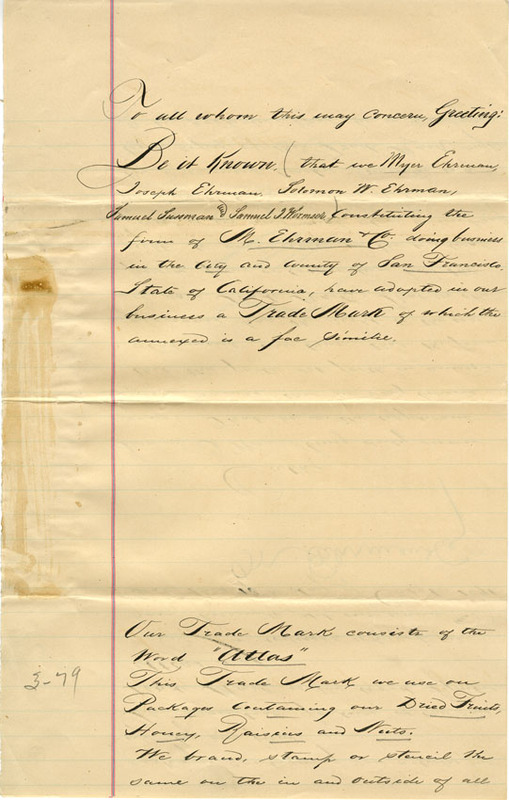 To all whom this may concern, Greeting:
Be it Known, (that we Myer Ehrman,
Joseph Ehrman, Solomon W. Ehrman,
Samuel Sussman and Samuel I. Wormser) Constituting the
firm of M. Ehrman & Co. doing business
in the City and County of San Francisco,
State of California, have adopted in our
business a Trade Mark of which the
annexed is a fac simile.
Our Trade Mark consists of the
Word "Atlas"
This Trade Mark we use on
Packages containing our Dried Fruits,
Honey, Raisins and Nuts.
We brand, stamp or stencil the
same on the in and outside of all
3-79